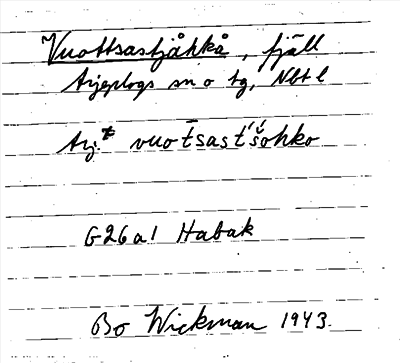 Vuottsastjåhkå, fjäll
Arjeplogs sn o tg, Nbt l
Arj. vuot̄sast́'š́ohko
G26a1 Habak
Bo Wickman 1943.